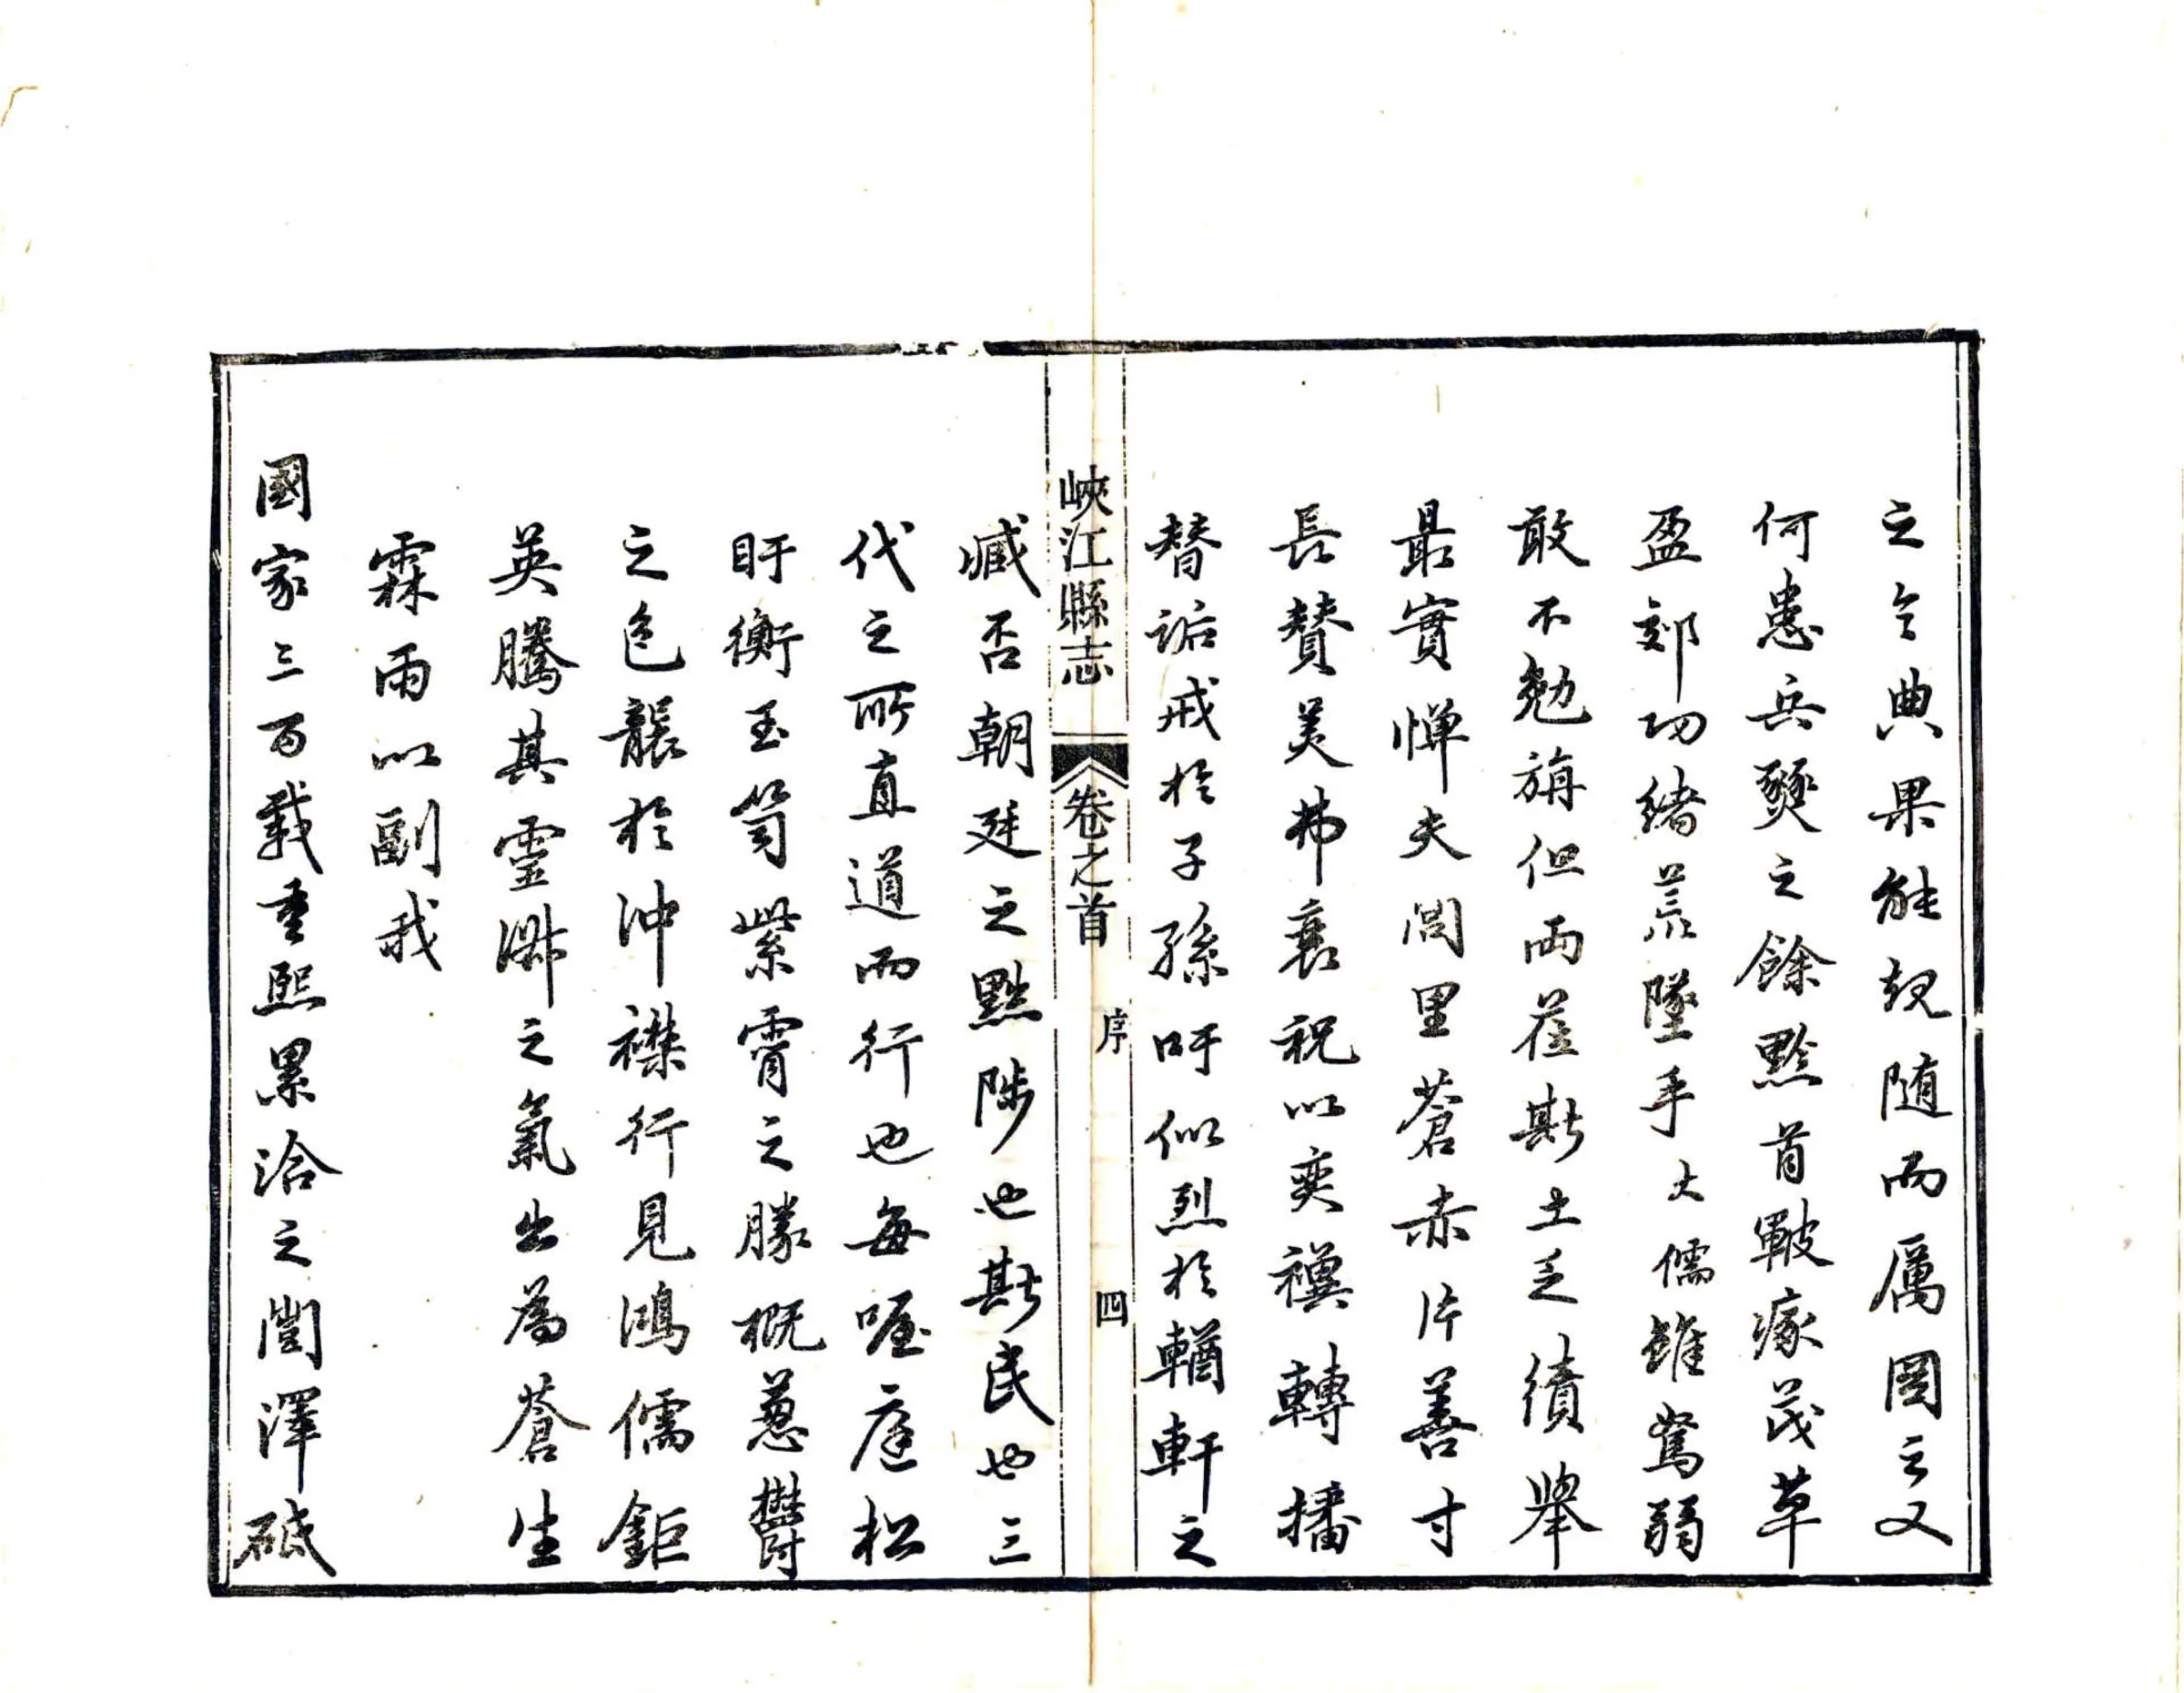 之令典果能規随而厲圖之又
何患兵燹之餘黔首皸瘃茂草
盈郊功緒荒墜手大儒雖駑弱
敢不勉旃但両蒞斯土乏績舉
最實憚夫閭里蒼赤片善寸
長賛美弗衰祝以奕禩轉播
替詬戒於子孫吁似烈於輶軒之
峽江縣志 卷之首 序 四
臧否朝廷之黜陟也斯民也三
代之所直道而行也每喔庭松
盱衡玉笥紫霄之勝概蔥鬱
之色襲於沖襟行見鴻儒鉅
英騰其靈淑之氣出為蒼生
霖雨以副我
國家三百載重熙累洽之闓澤砥